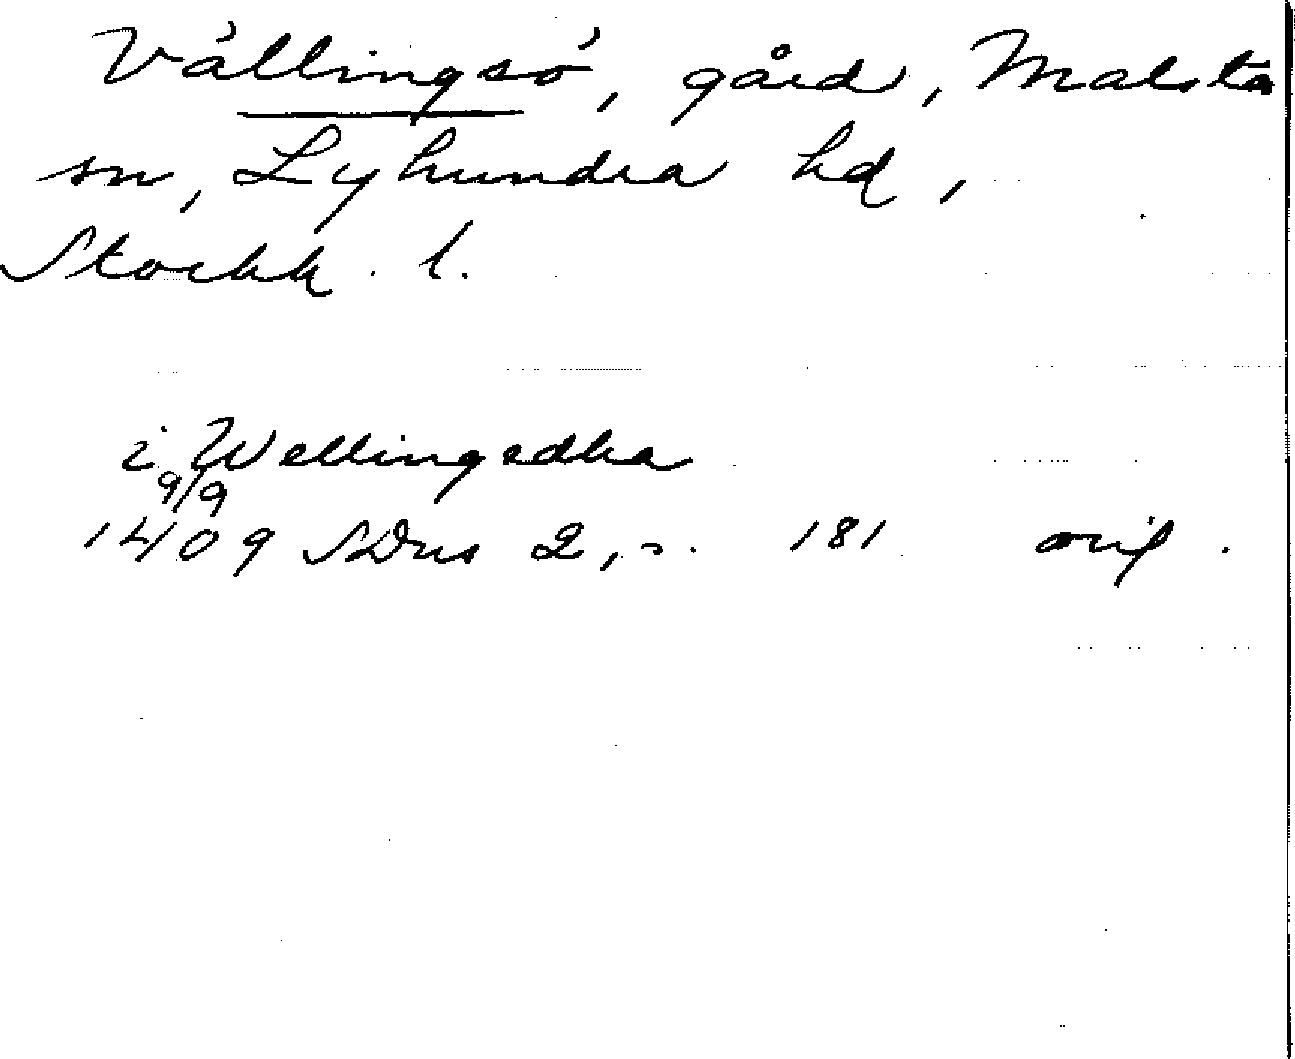 Vällingsö, gård, Malsta
sn, Lyhundra hd,
Stockh. l.
i Wellingsedha
9/9
1409 SDns 2, s. 181 orig.